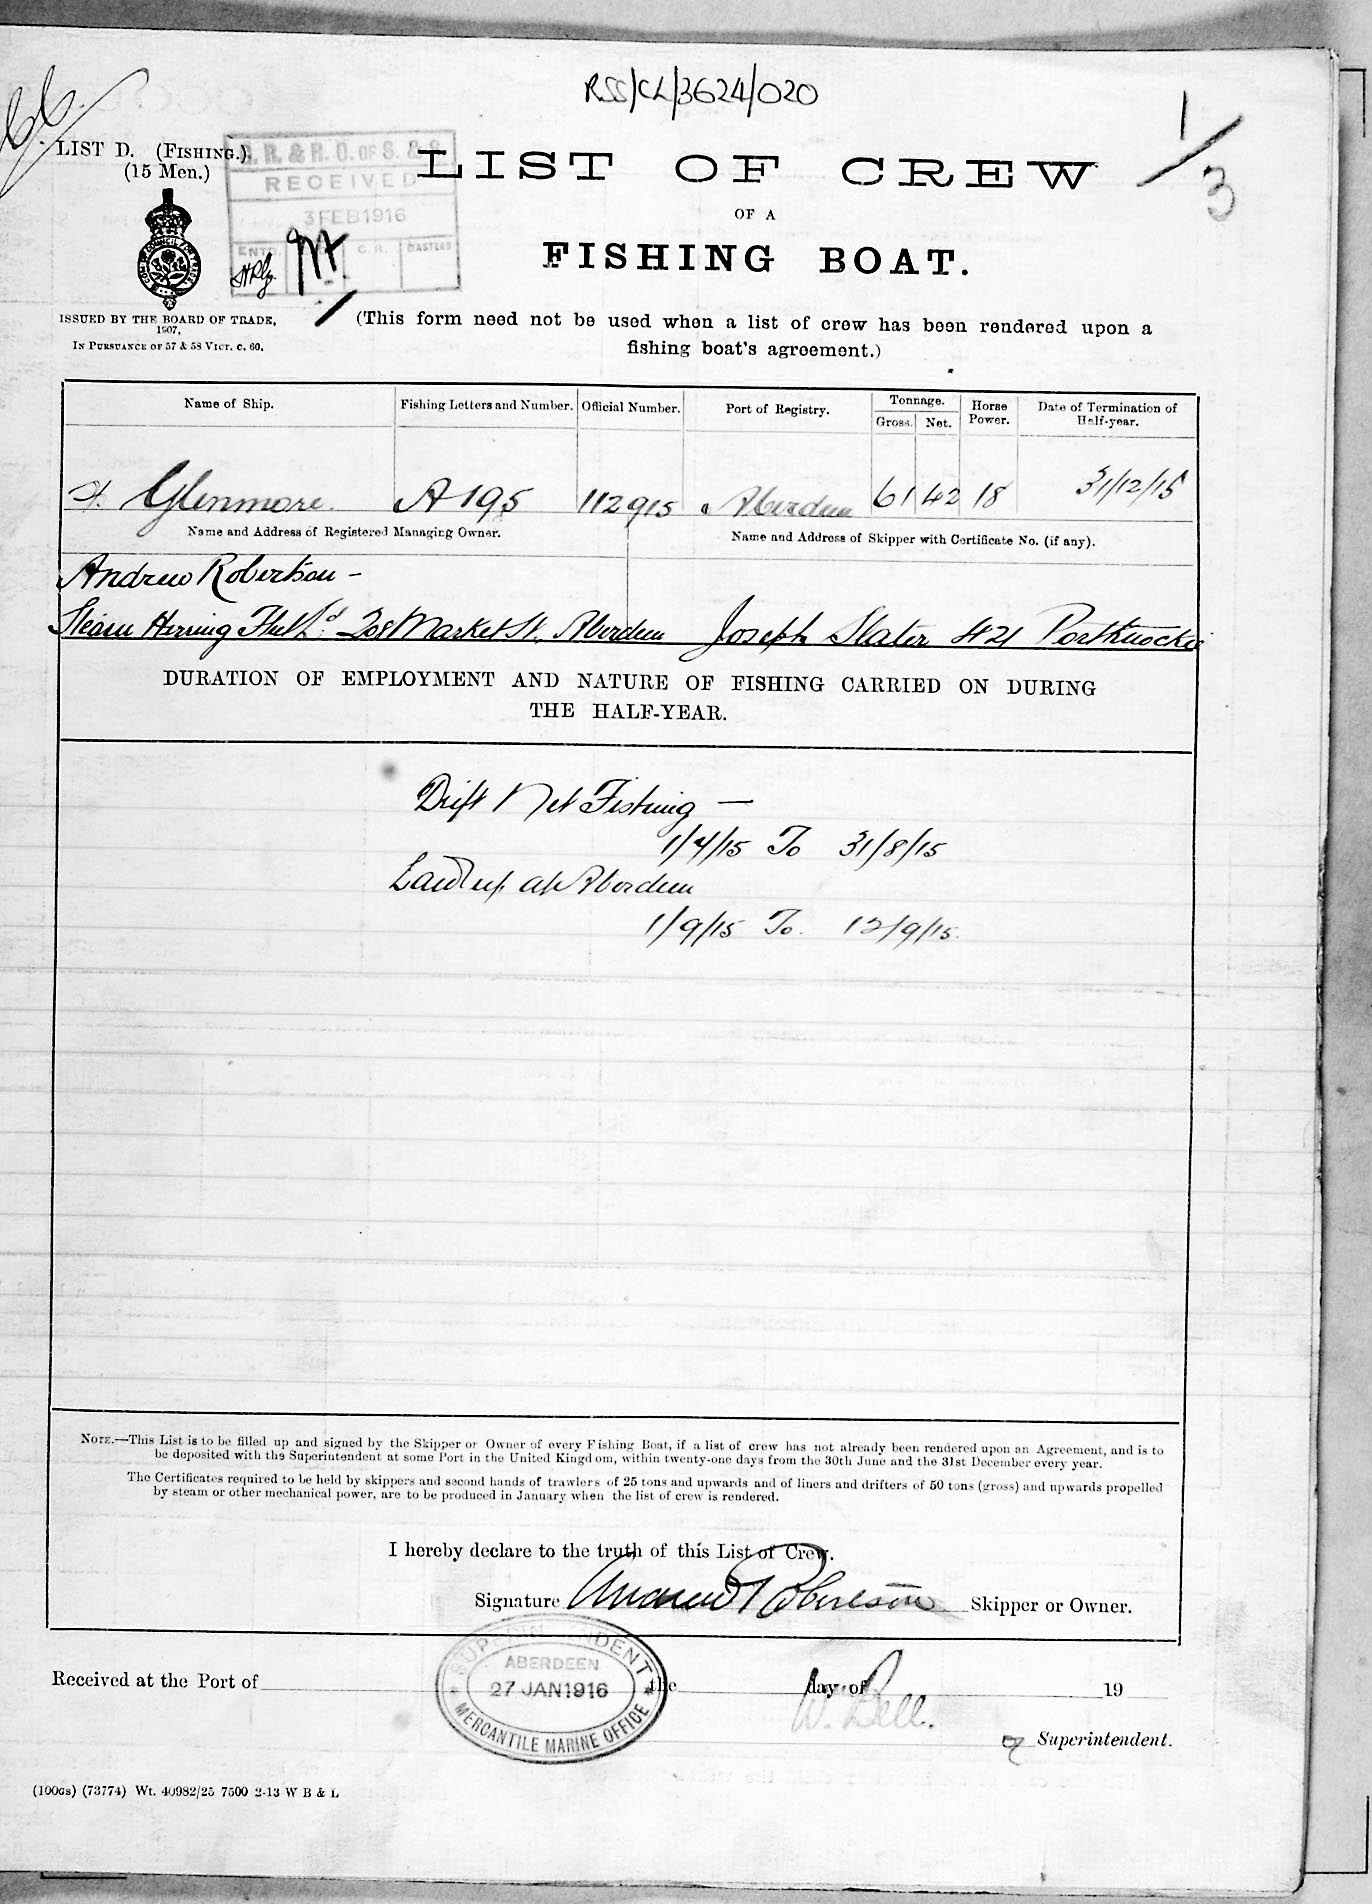 RSS/CL/3624/020
1/3
LIST D. (FISHING.)
(15 Men.)
R. & R. O. OF S. & S.
RECEIVED
3 FEB 1916
LIST OF CREW
OF A
FISHING BOAT.
ISSUED BY THE BOARD OF TRADE,
1907,
IN PURSUANCE OF 57 & 58 VICT. C. 60.
(This form need not be used when a list of crew has been rendered upon a
fishing boat's agreement.)
Name of Ship. Fishing Letters and Number. Official Number. Port of Registry. Tonnage. Horse Power. Date of Termination of Half-year.
Gross. Net.
Glenmore. A 195 112915 Aberdeen 61 42 18 31/12/15
Name and Address of Registered Managing Owner. Name and Address of Skipper with Certificate No. (if any).
Andrew Robertson -
Steam Herring Fleet Ld. 208 Market St. Aberdeen Joseph Slater 421 Portknockie
DURATION OF EMPLOYMENT AND NATURE OF FISHING CARRIED ON DURING
THE HALF-YEAR.
Drift Net Fishing —
1/7/15 To 31/8/15
Laid up at Aberdeen
1/9/15 To. 12/9/15.
NOTE.—This List is to be filled up and signed by the Skipper or Owner of every Fishing Boat, if a list of crew has not already been rendered upon an Agreement, and is to
be deposited with the Superintendent at some Port in the United Kingdom, within twenty-one days from the 30th June and the 31st December every year.
The Certificates required to be held by skippers and second hands of trawlers of 25 tons and upwards and of liners and drifters of 50 tons (gross) and upwards propelled
by steam or other mechanical power, are to be produced in January when the list of crew is rendered.
I hereby declare to the truth of this List of Crew.
Signature Andrew Robertson Skipper or Owner.
SUPERINTENDENT
ABERDEEN
27 JAN 1916
MERCANTILE MARINE OFFICE
Received at the Port of the day of 19
W. Bell.
Superintendent.
(100GS) (73774) Wt. 40982/25 7500 2-13 W B & L